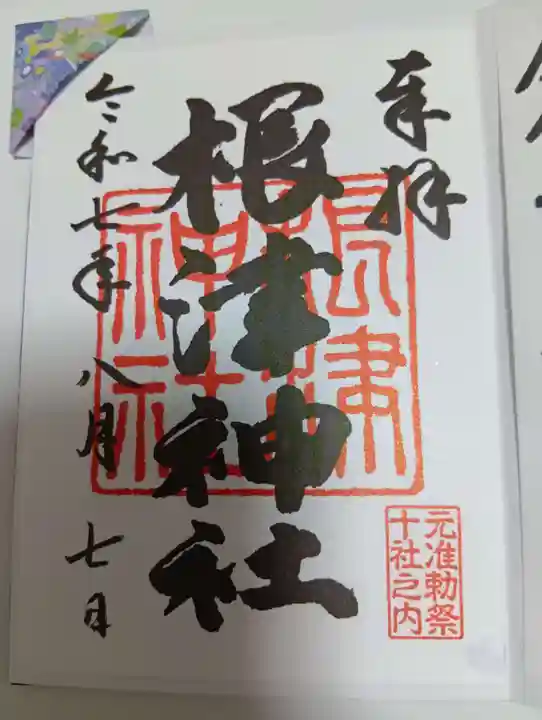 奉拝
根津神社
根津神社
元准勅祭
十社之内
令和七年八月七日